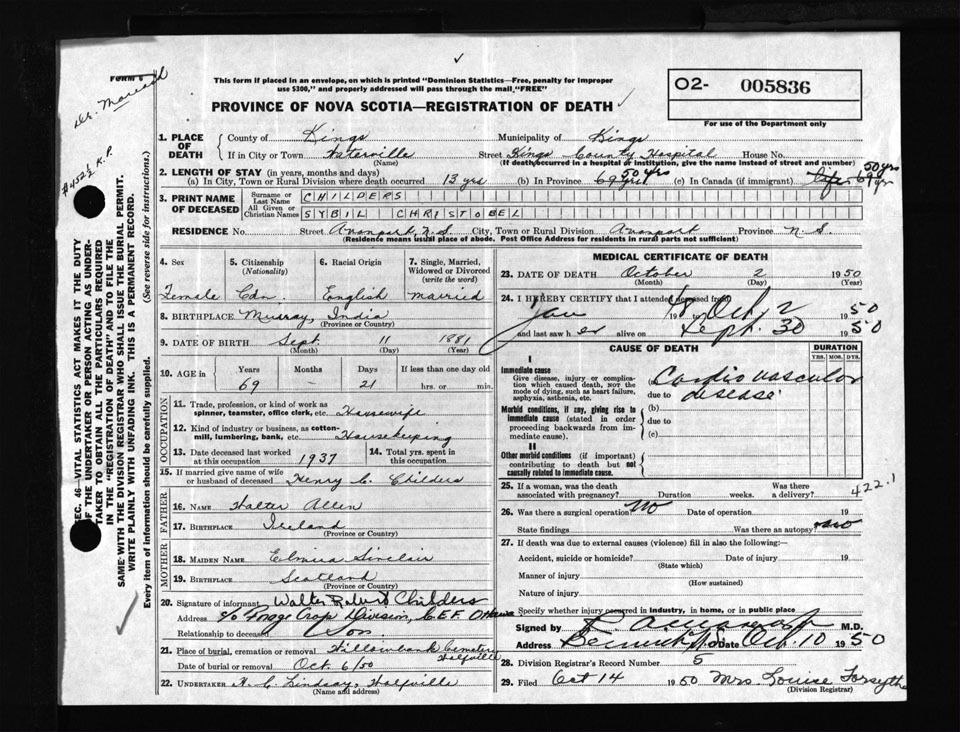 FORM 6
Dr. 
#452½ K.P.
This form if placed in an envelope, on which is printed "Dominion Statistics—Free, penalty for improper
use $300," and properly addressed will pass through the mail "FREE"
PROVINCE OF NOVA SCOTIA—REGISTRATION OF DEATH
O2- 005836
For use of the Department only
1. PLACE OF DEATH
County of Kings Municipality of Kings
If in City or Town Waterville Street Kings County Hospital House No.
(Name) (If death occurred in a hospital or institution, give the name instead of street and number)
2. LENGTH OF STAY (in years, months and days)
(a) In City, Town or Rural Division where death occurred 13 yrs (b) In Province 69 yrs 50 yrs (c) In Canada (if immigrant) life 69 yr 50 yrs
3. PRINT NAME OF DECEASED
Surname or Last Name CHILDERS
All Given or Christian Names SYBIL CHRISTOBEL
RESIDENCE No. Street Avonport, N.S. City, Town or Rural Division Avonport Province N.S.
(Residence means usual place of abode. Post Office Address for residents in rural parts not sufficient)
4. Sex Female
5. Citizenship (Nationality) Cdn.
6. Racial Origin English
7. Single, Married, Widowed or Divorced (write the word) married
8. BIRTHPLACE Murray, India
(Province or Country)
9. DATE OF BIRTH Sept. 11 1881
(Month) (Day) (Year)
10. AGE in Years Months Days If less than one day old
69 – 21 hrs. or min.
OCCUPATION
11. Trade, profession, or kind of work as
spinner, teamster, office clerk, etc. Housewife
12. Kind of industry or business, as cotton-
mill, lumbering, bank, etc. Housekeeping
13. Date deceased last worked at this occupation 1937
14. Total yrs. spent in this occupation
15. If married give name of wife or husband of deceased Henry C. Childers
FATHER
16. NAME Walter Allen
17. BIRTHPLACE Ireland
(Province or Country)
MOTHER
18. MAIDEN NAME Elmira Sinclair
19. BIRTHPLACE Scotland
(Province or Country)
20. Signature of informant Walter Robert Childers
Address c/o Forage Crops Division, C.E.F. Ottawa
Relationship to deceased Son.
21. Place of burial, cremation or removal Willowbank Cemetery Wolfville
Date of burial or removal Oct. 6/50
22. UNDERTAKER W. C. Lindsay, Wolfville
(Name and address)
MEDICAL CERTIFICATE OF DEATH
23. DATE OF DEATH October 2 1950
(Month) (Day) (Year)
24. I HEREBY CERTIFY that I attended deceased from
Jan 1948 Oct 2 1950
and last saw her alive on Sept. 30 1950
CAUSE OF DEATH DURATION
YRS. MOS. DYS.
I
Immediate cause
Give disease, injury or complication which caused death, NOT the mode of dying, such as heart failure, asphyxia, asthenia, etc.
Cardio vascular
due to disease
Morbid conditions, if any, giving rise to immediate cause (stated in order proceeding backwards from immediate cause).
(b)
due to
(c)
II
Other morbid conditions (if important) contributing to death but not causally related to immediate cause.
25. If a woman, was the death associated with pregnancy? Duration weeks. Was there a delivery?
422.1
26. Was there a surgical operation? No Date of operation 19
State findings Was there an autopsy? no
27. If death was due to external causes (violence) fill in also the following:—
Accident, suicide or homicide? Date of injury 19
(State which)
Manner of injury
(How sustained)
Nature of injury
Specify whether injury occurred in industry, in home, or in public place
Signed by M.D.
Address Berwick N.S. Date Oct. 10 1950
28. Division Registrar's Record Number 5
29. Filed Oct 14 1950 Mrs. Louise Forsythe
(Division Registrar)
SEC. 46—VITAL STATISTICS ACT MAKES IT THE DUTY
OF THE UNDERTAKER OR PERSON ACTING AS UNDER-
TAKER TO OBTAIN ALL THE PARTICULARS REQUIRED
IN THE "REGISTRATION OF DEATH" AND TO FILE THE
SAME WITH THE DIVISION REGISTRAR WHO SHALL ISSUE THE BURIAL PERMIT.
WRITE PLAINLY WITH UNFADING INK. THIS IS A PERMANENT RECORD.
Every item of information should be carefully supplied. (See reverse side for instructions.)